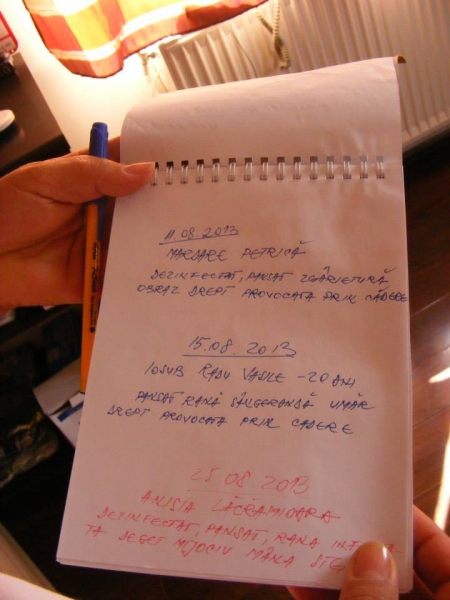 11.08.2013
MARDARE PETRICĂ
DEZINFECTAT, PANSAT ZGÂRIETURĂ
OBRAZ DREPT PROVOCATA PRIN CĂDERE
15.08.2013
IOSUB RADU VASILE - 20 ANI
PANSAT RANĂ SÂNGERANDĂ UMĂR
DREPT PROVOCATA PRIN CADERE
25.08.2013
ANISIA LĂCRAMIOARA
DEZINFECTAT, PANSAT, RANA
TA DEGET MIJOCIU MÂNA STG